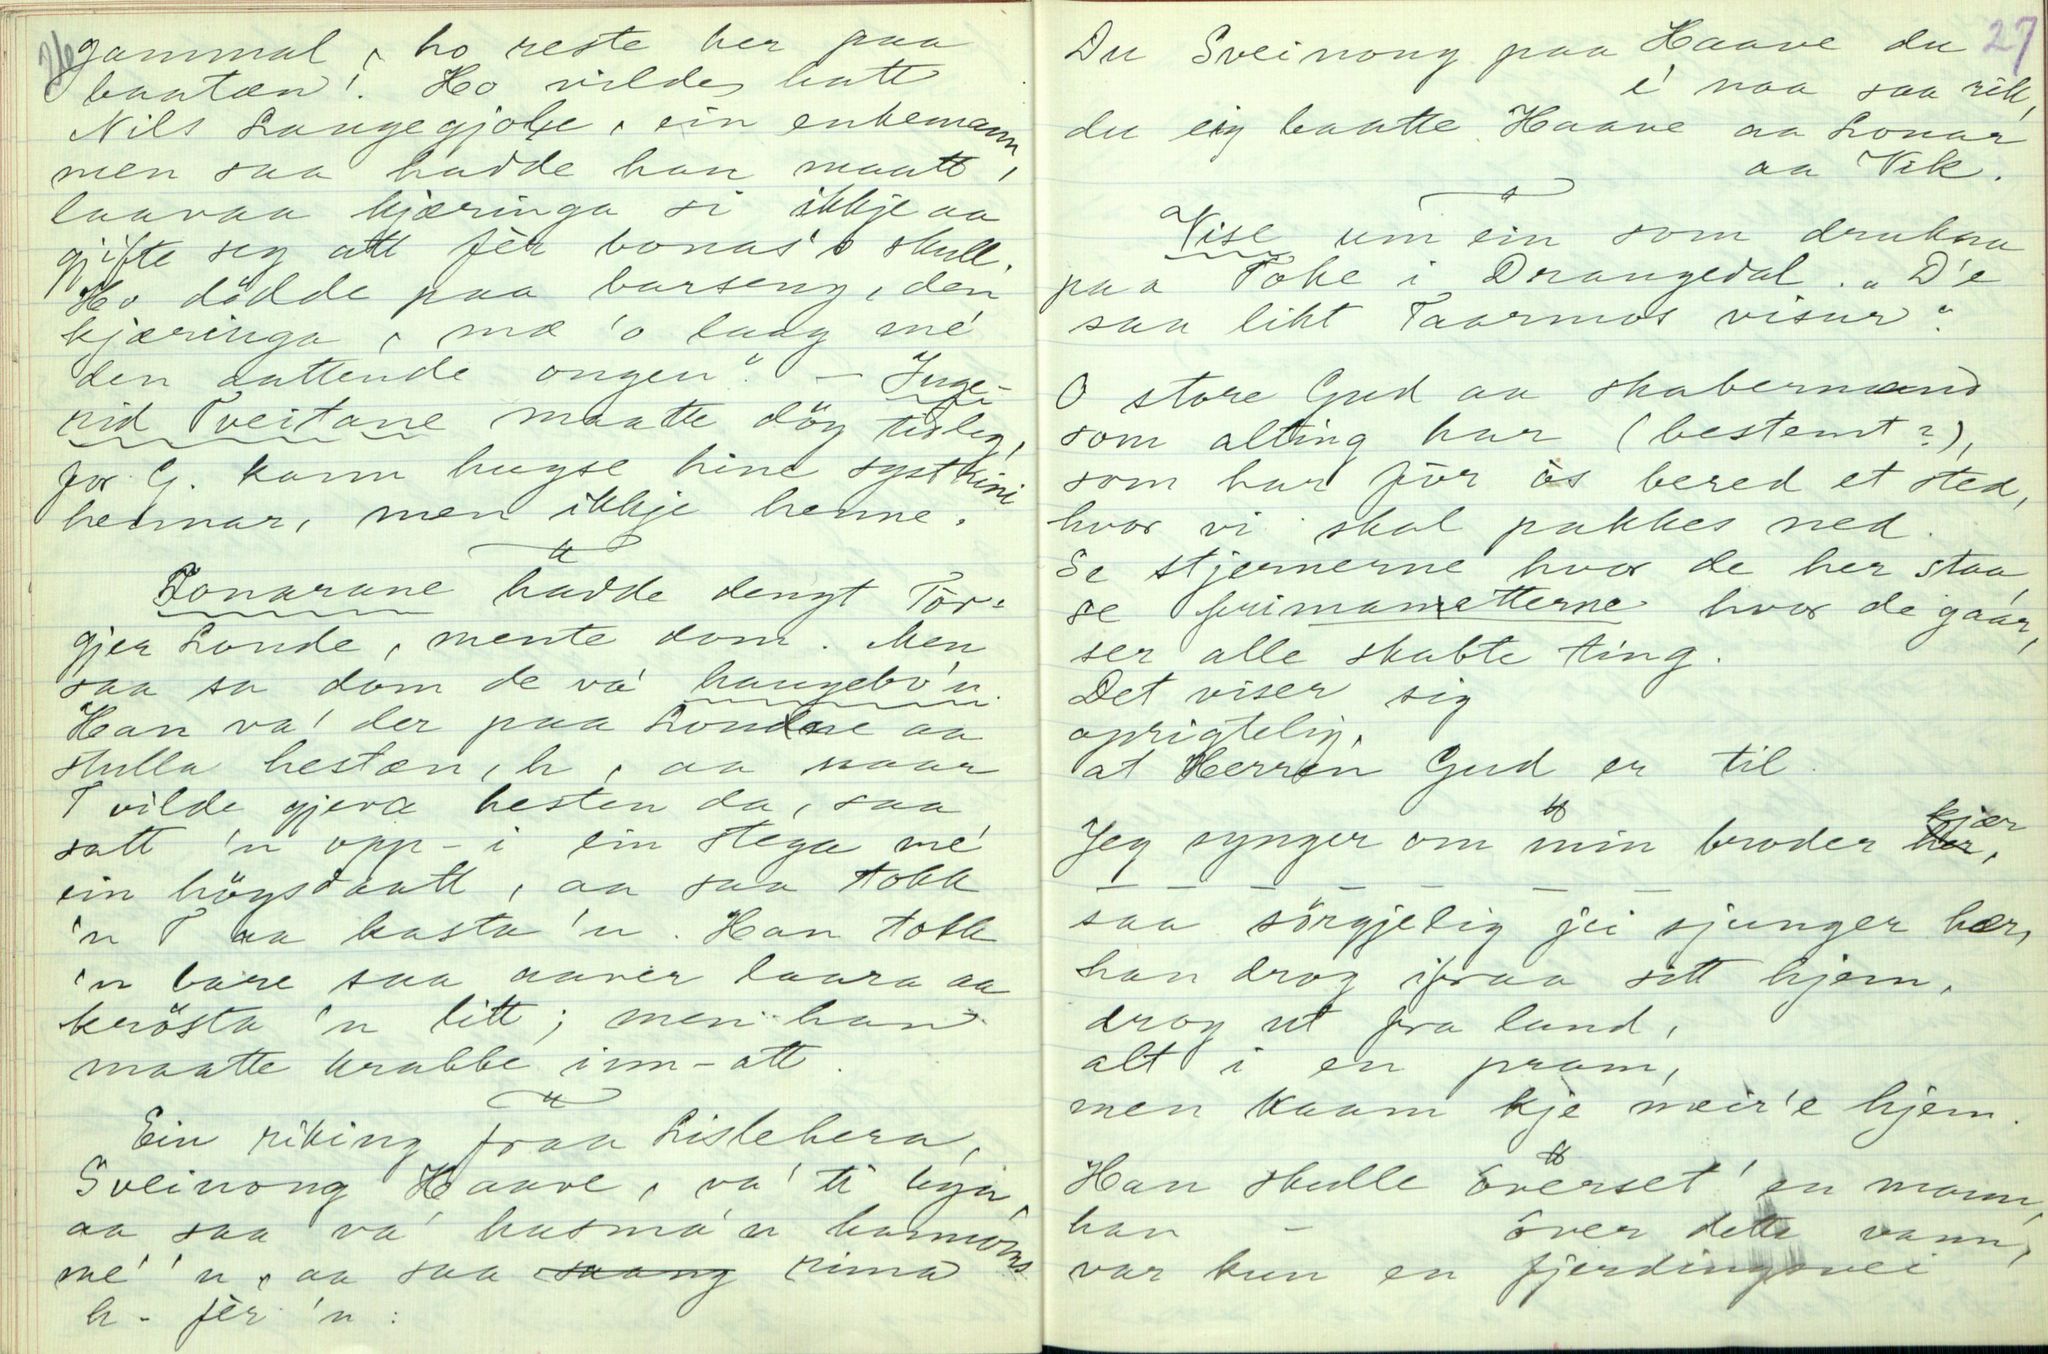 26
gammal, ho reste her paa
baatæn! Ho vilde hatt
Nils Laugegjole, ein enkemann,
men saa hadde han maatt,
laavaa kjæringa si ikkje aa
gjifte seg att fèr bonas's skull.
Ho dødde paa barseng, den
kjæringa, mæ 'o laag me'
den aattende ongen". — Inge-
rid Tveitane maatte döy tisleg,
for G. kann hugse hine systkini
hennar, men ikkje henne.
Tonarane hadde dengt Tor=
gjer Londe, mente dom. Men
saa sa dom de va' haugebo'n.
Han va' der paa Londene aa
stulla hestæn, h, aa naar
T vilde gjeva hesten da, saa
satt 'n opp-i ein stega me'
ein höysdaatt, aa saa tokk
'n T aa kasta 'n. Han tokk
'n bare saa aaver laara aa
krösta 'n litt; men han
maatte krabbe inn-att.
Ein riking fraa Lislehera,
Sveinong Haave, va' ti byn,
aa saa va' husma'n hannoms
me' 'n, aa saa saang rima
h - fèr 'n:
27
Du Sveinong paa Haave du
e' naa saa rik,
du eig baatte Haave aa Lonar
aa Vik.
Vise um ein som drukna
paa Toke i Drangedal. „D'e
saa likt Taarmos visur".
O store Gud aa skabermand
som alting har (bestemt?),
som har för os bered et sted,
hvor vi skal pakkes ned.
Se stjernerne hvor de her staa,
se frimanetterne hvor de gaar,
ser alle skabte ting.
Det viser sig
oprigtelig,
at Herren Gud er til.
Jeg synger om min broder her, kjær
— — — — — — —
saa sörgjelig jei sjunger hær,
han drog ifraa sitt hjem,
drog ut fra land,
alt i en pram,
men kaam kje meir'e hjem.
Han skulle överset' en mann,
han — över dette vann,
var kun en fjerdingsvei